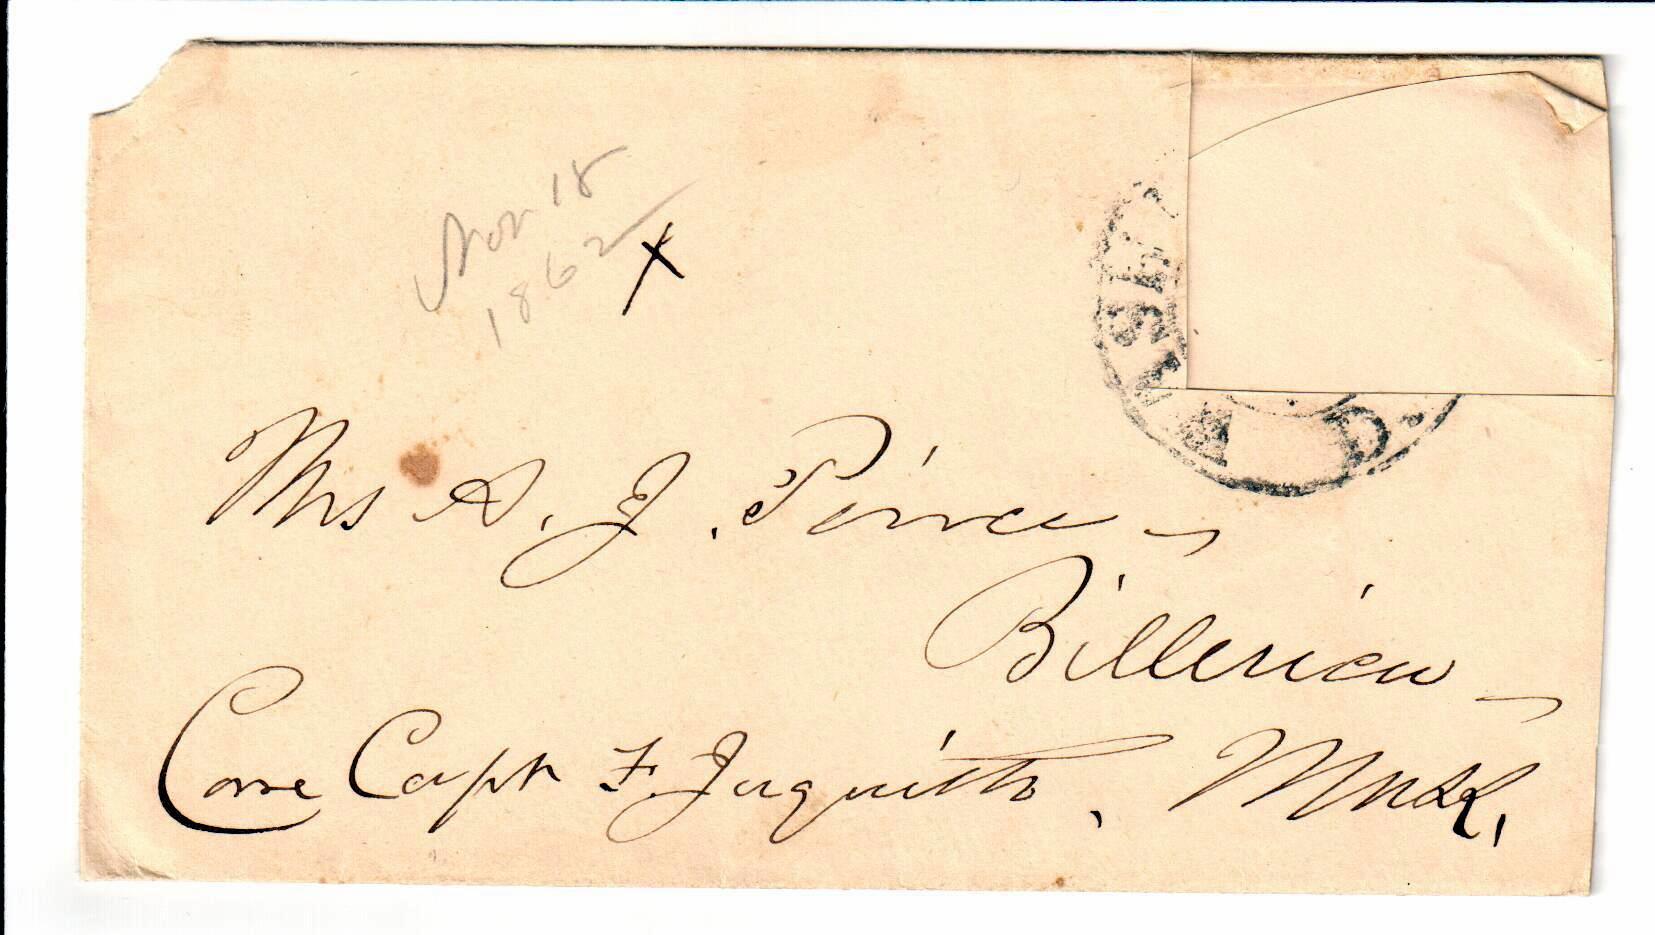 Nov 18
1862
X
WASH
D. C.
Mrs A. J. Peirce
Billerica
Care Capt F. Jaquith, Mass,